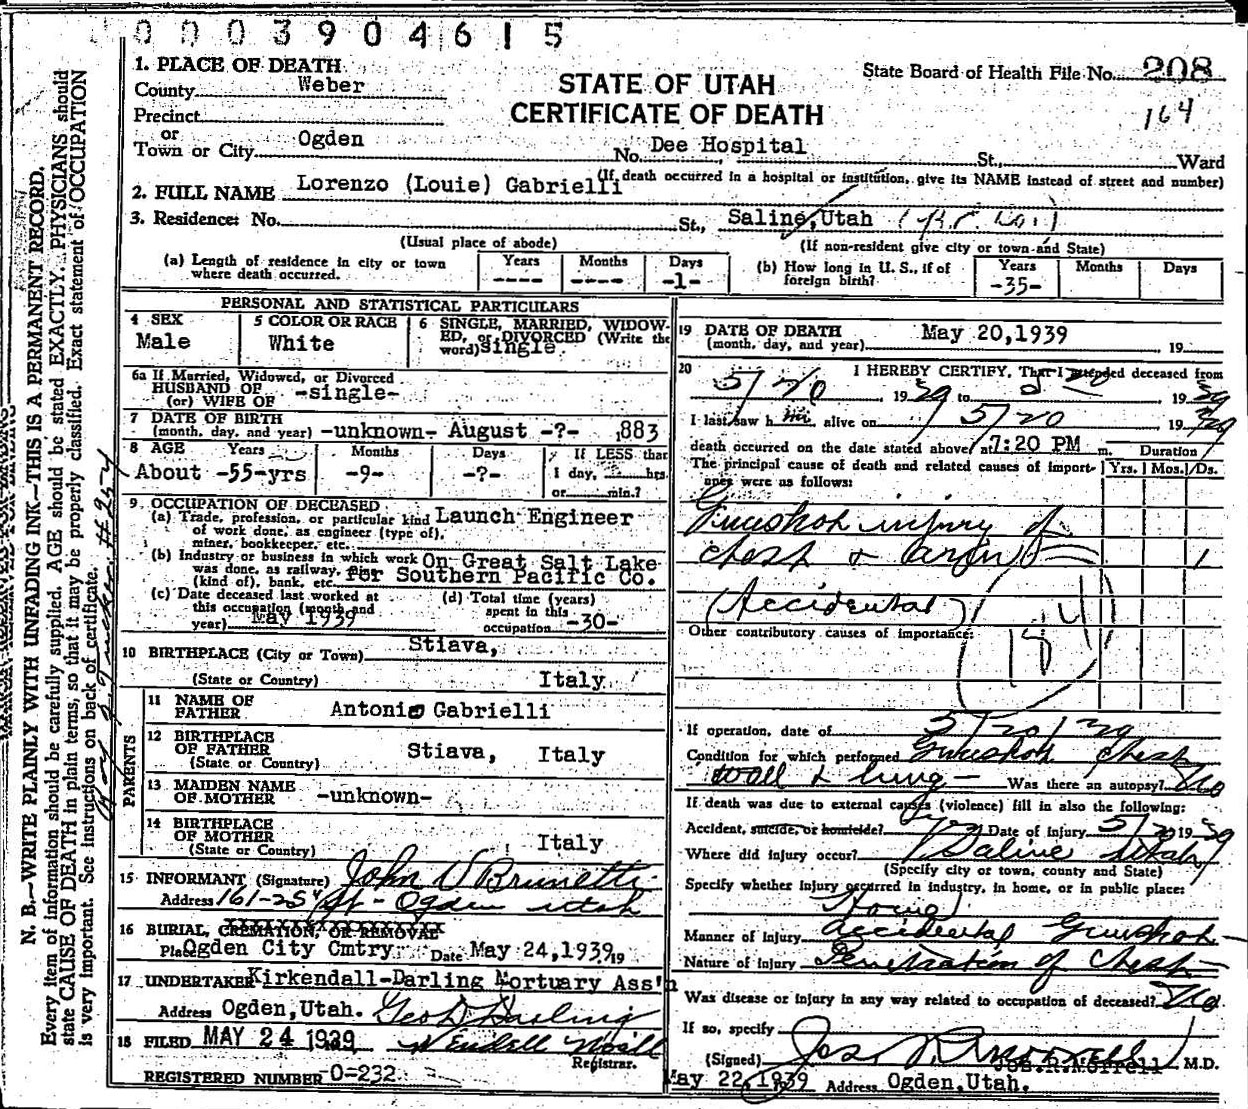 0003904615
1. PLACE OF DEATH
County Weber
Precinct
or
Town or City Ogden
STATE OF UTAH
CERTIFICATE OF DEATH
State Board of Health File No. 208
164
No. Dee Hospital St., Ward
(If death occurred in a hospital or institution, give its NAME instead of street and number)
2. FULL NAME Lorenzo (Louie) Gabrielli
3. Residence: No. St., Saline, Utah
(Usual place of abode) (If non-resident give city or town and State)
(a) Length of residence in city or town where death occurred. Years ---- Months ---- Days -1-
(b) How long in U. S., if of foreign birth? Years -35- Months Days
PERSONAL AND STATISTICAL PARTICULARS
4 SEX Male
5 COLOR OR RACE White
6 SINGLE, MARRIED, WIDOWED, or DIVORCED (Write the word) single
6a If Married, Widowed, or Divorced
HUSBAND OF
(or) WIFE OF -single-
7 DATE OF BIRTH
(month, day, and year) -unknown- August -?- ,883
8 AGE Years Months Days If LESS than
About -55-yrs -9- -?- 1 day, hrs.
or min.?
9 OCCUPATION OF DECEASED
(a) Trade, profession, or particular kind of work done, as engineer (type of), miner, bookkeeper, etc. Launch Engineer
(b) Industry or business in which work was done, as railway, (kind of), bank, etc. On Great Salt Lake for Southern Pacific Co.
(c) Date deceased last worked at this occupation (month and year) May 1939
(d) Total time (years) spent in this occupation -30-
10 BIRTHPLACE (City or Town) Stiava,
(State or Country) Italy
PARENTS
11 NAME OF FATHER Antonio Gabrielli
12 BIRTHPLACE OF FATHER Stiava, Italy
(State or Country)
13 MAIDEN NAME OF MOTHER -unknown-
14 BIRTHPLACE OF MOTHER
(State or Country) Italy
15 INFORMANT (Signature) John V Brunetti
Address 161-25th St - Ogden Utah
16 BURIAL, CREMATION, OR REMOVAL
Place Ogden City Cmtry. Date May 24,1939 19
17 UNDERTAKER Kirkendall-Darling Mortuary Ass'n
Address Ogden,Utah. Geo D Darling
18 FILED MAY 24 1939
Registrar.
REGISTERED NUMBER 0-232
19 DATE OF DEATH
(month, day, and year) May 20,1939 19
20 I HEREBY CERTIFY, That I attended deceased from
5/20 1939 to 5-20, 1939
I last saw him alive on 5/20 1939
death occurred on the date stated above, at 7:20 PM m. Duration
The principal cause of death and related causes of importance were as follows: Yrs. Mos. Ds.
Gunshot injury of
chest & arm 1
(Accidental)
184
Other contributory causes of importance:
If operation, date of 5/20/39
Condition for which performed Gunshot Chest
wall & lung - Was there an autopsy? No
If death was due to external causes (violence) fill in also the following:
Accident, suicide, or homicide? Yes Date of injury 5/20 1939
Where did injury occur? Saline Utah
(Specify city or town, county and State)
Specify whether injury occurred in industry, in home, or in public place:
Home
Manner of injury accidental Gunshot
Nature of injury Penetration of Chest
Was disease or injury in any way related to occupation of deceased? No
If so, specify
(Signed) Jos R Morrell
Jos.R.Morrell M.D.
May 22,1939 Address Ogden,Utah.
N. B.—WRITE PLAINLY WITH UNFADING INK—THIS IS A PERMANENT RECORD.
Every item of information should be carefully supplied. AGE should be stated EXACTLY. PHYSICIANS should
state CAUSE OF DEATH in plain terms, so that it may be properly classified. Exact statement of OCCUPATION
is very important. See instructions on back of certificate.